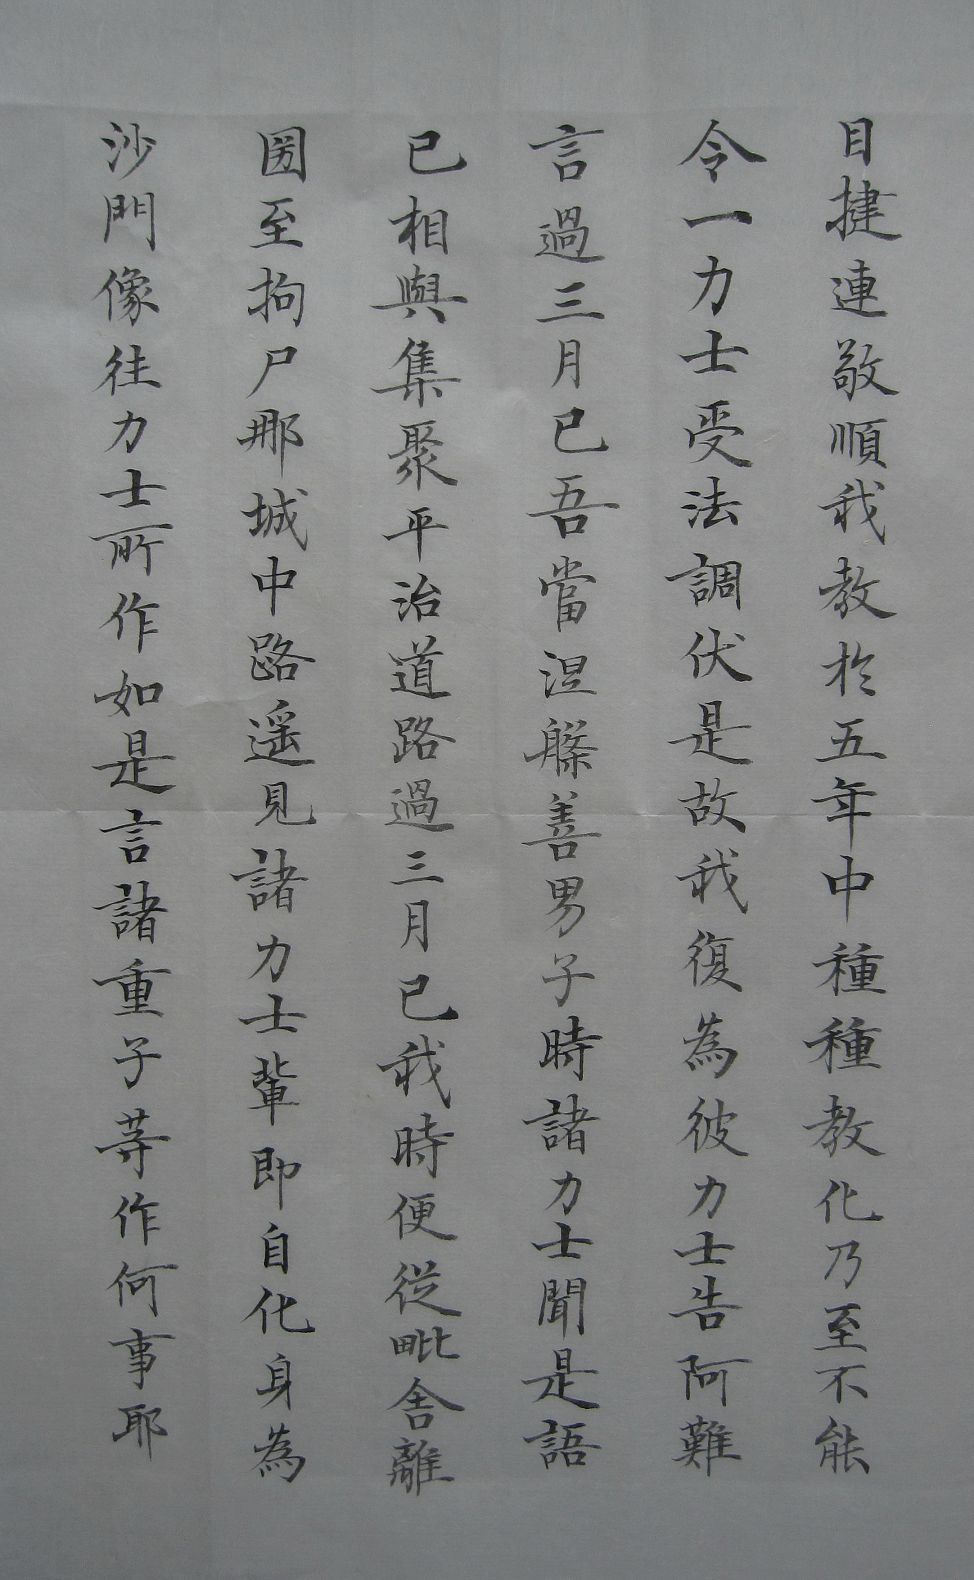 目揵連敬順我教於五年中種種教化乃至不能
令一力士受法調伏是故我復為彼力士告阿難
言過三月已吾當涅槃善男子時諸力士聞是語
已相與集聚平治道路過三月已我時便從毗舍離
國至拘尸那城中路遥見諸力士輩即自化身為
沙門像往力士所作如是言諸童子等作何事耶